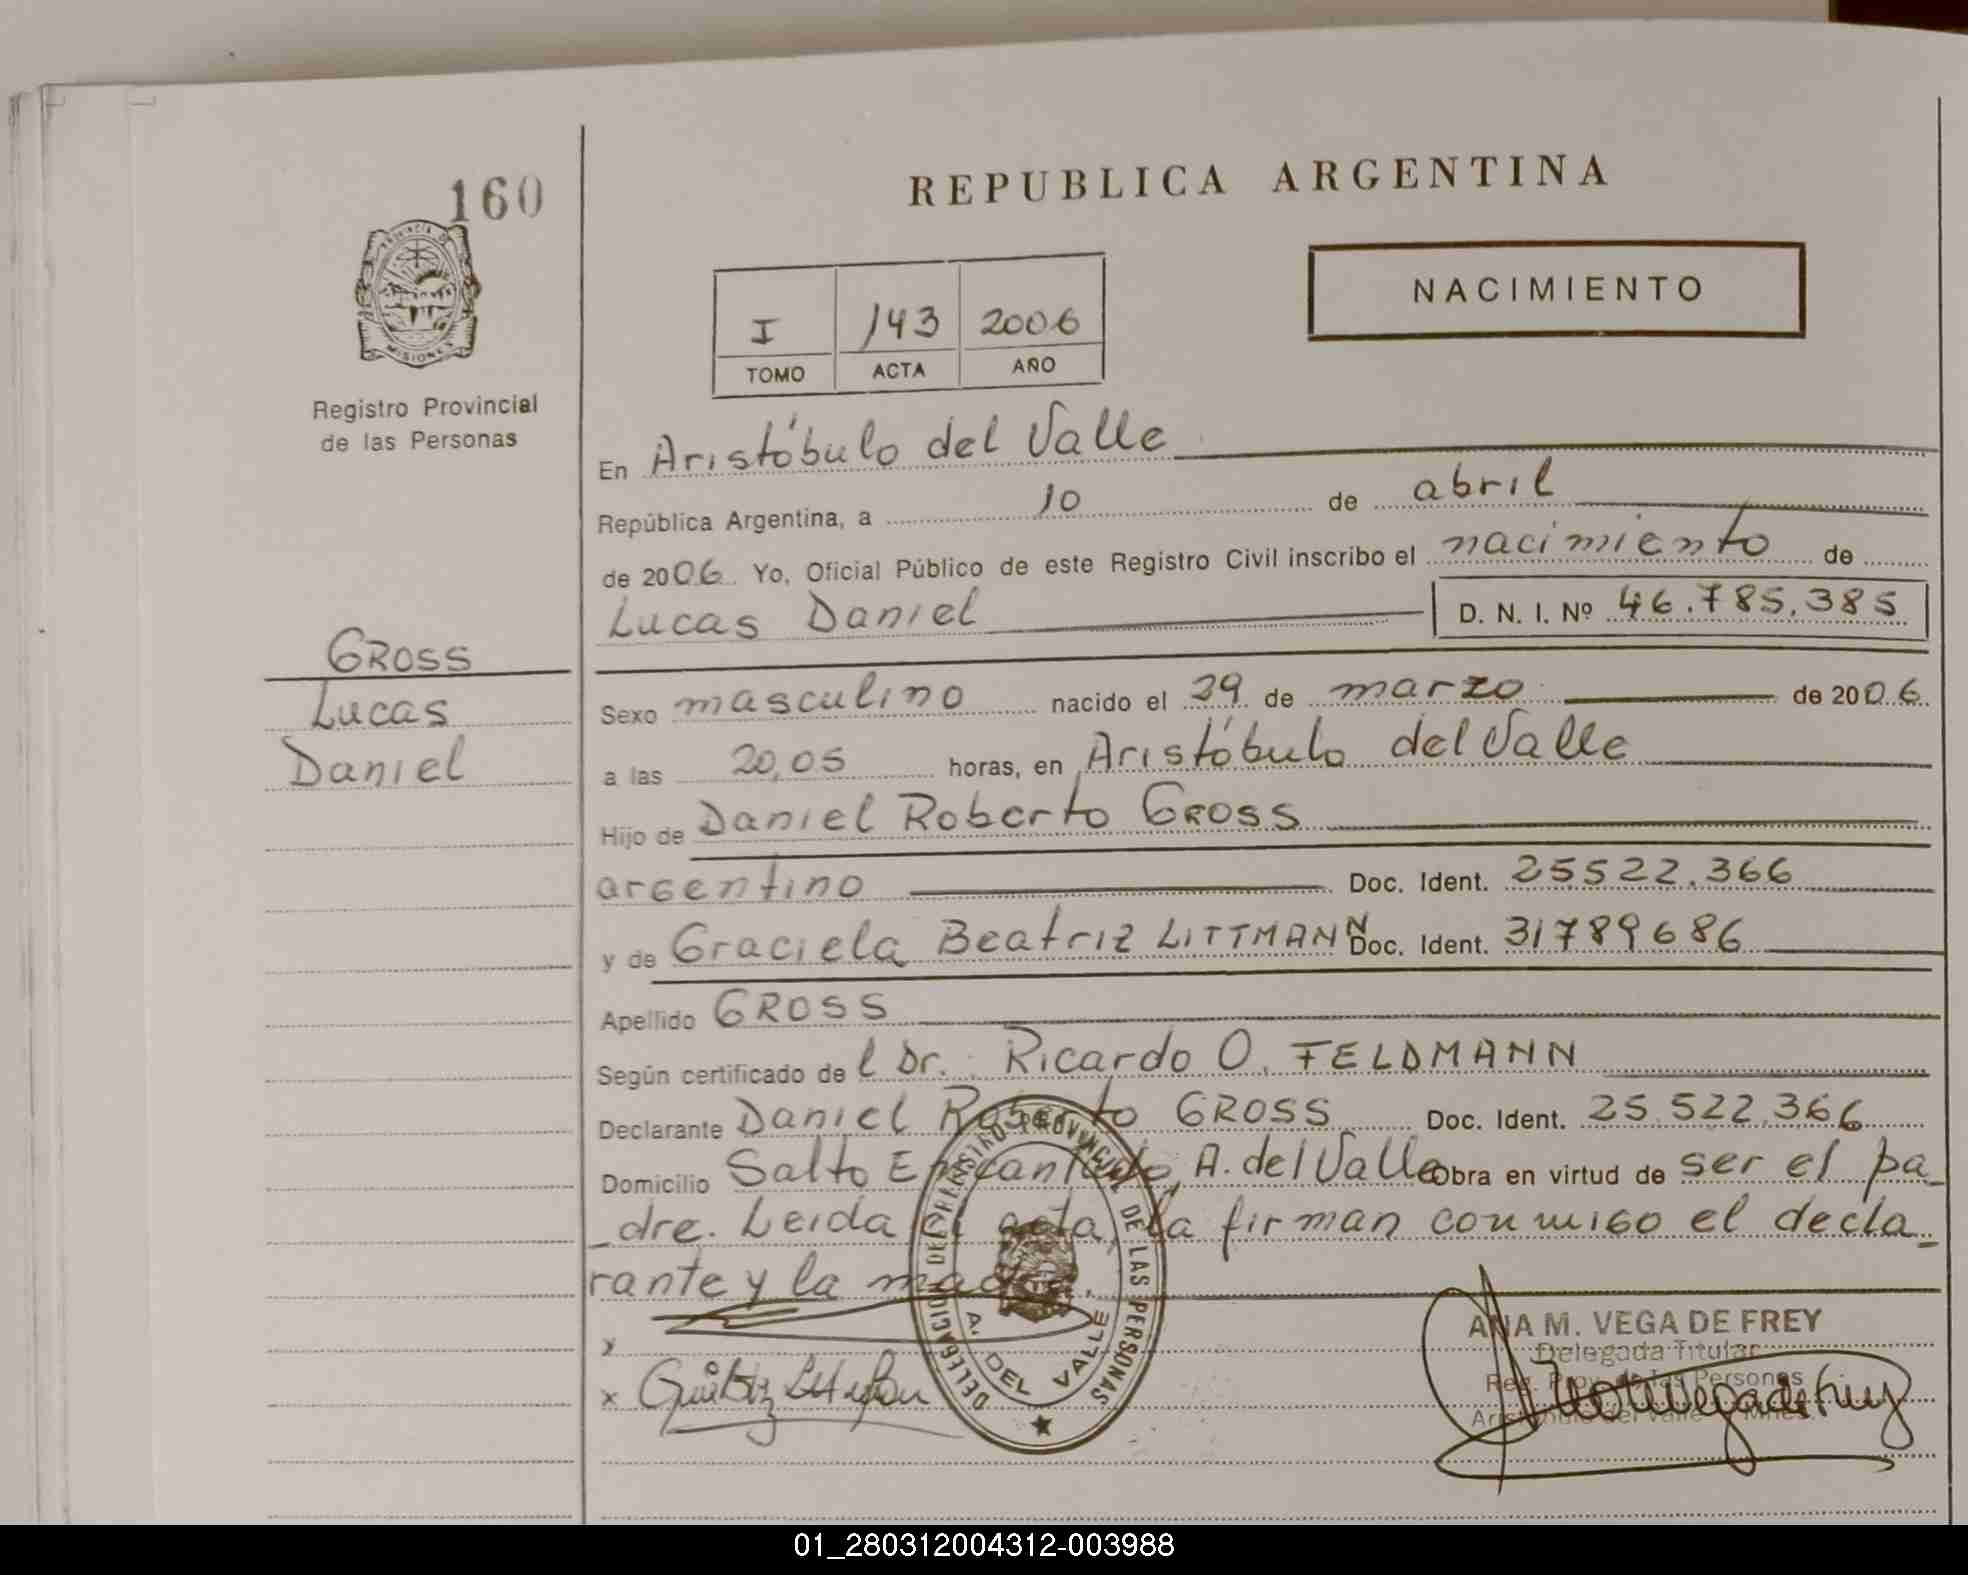 160
PROVINCIA DE
MISIONES
Registro Provincial
de las Personas
REPUBLICA ARGENTINA
NACIMIENTO
I 143 2006
TOMO ACTA AÑO
En Aristóbulo del Valle
República Argentina, a 10 de abril
de 2006. Yo, Oficial Público de este Registro Civil inscribo el nacimiento de
Lucas Daniel D. N. I. Nº 46.785.385
GROSS
Lucas
Daniel
Sexo masculino nacido el 29 de marzo de 2006.
a las 20,05 horas, en Aristóbulo del Valle
Hijo de Daniel Roberto GROSS
argentino Doc. Ident. 25522.366
y de Graciela Beatriz LITTMANN Doc. Ident. 31789686
Apellido GROSS
Según certificado de l Dr. Ricardo O. FELDMANN
Declarante Daniel Roberto GROSS Doc. Ident. 25.522.366
Domicilio Salto Encantado, A. del Valle Obra en virtud de ser el pa_
_dre. Leida el acta, la firman conmigo el decla_
rante y la madre.
DELEGACION DEL REGISTRO PROVINCIAL DE LAS PERSONAS
A. DEL VALLE
x
x
ANA M. VEGA DE FREY
Delegada Titular
Reg. Prov. de las Personas
Aristóbulo del Valle - Mnes
01_280312004312-003988